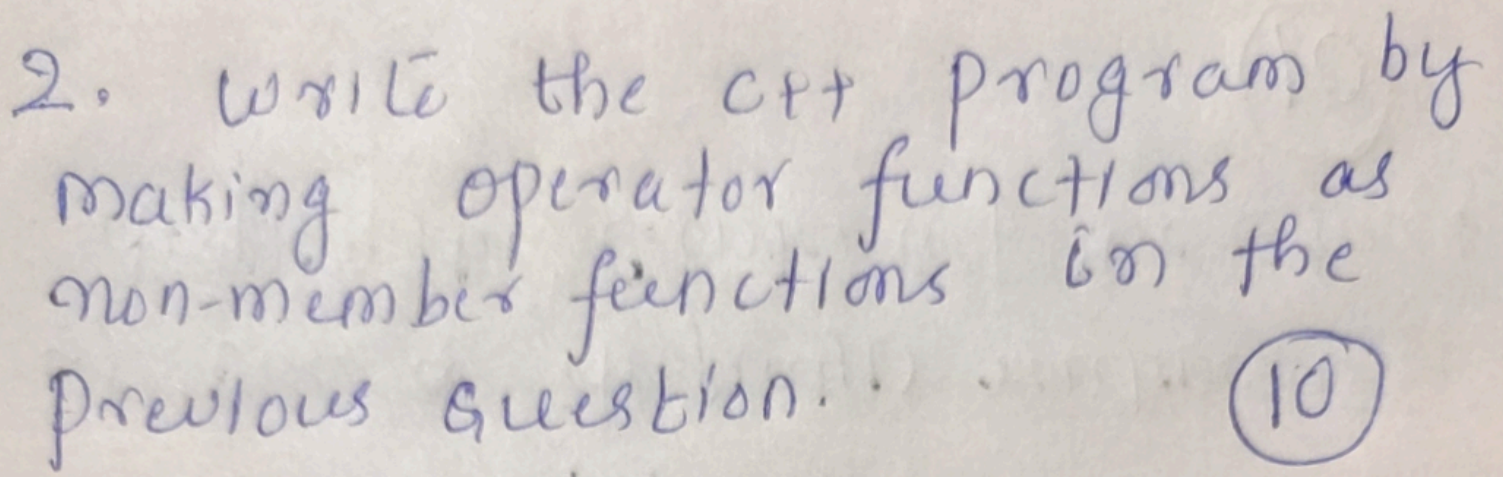 2. Write the c++ program by
making operator functions as
non-member functions in the
previous Question. 10